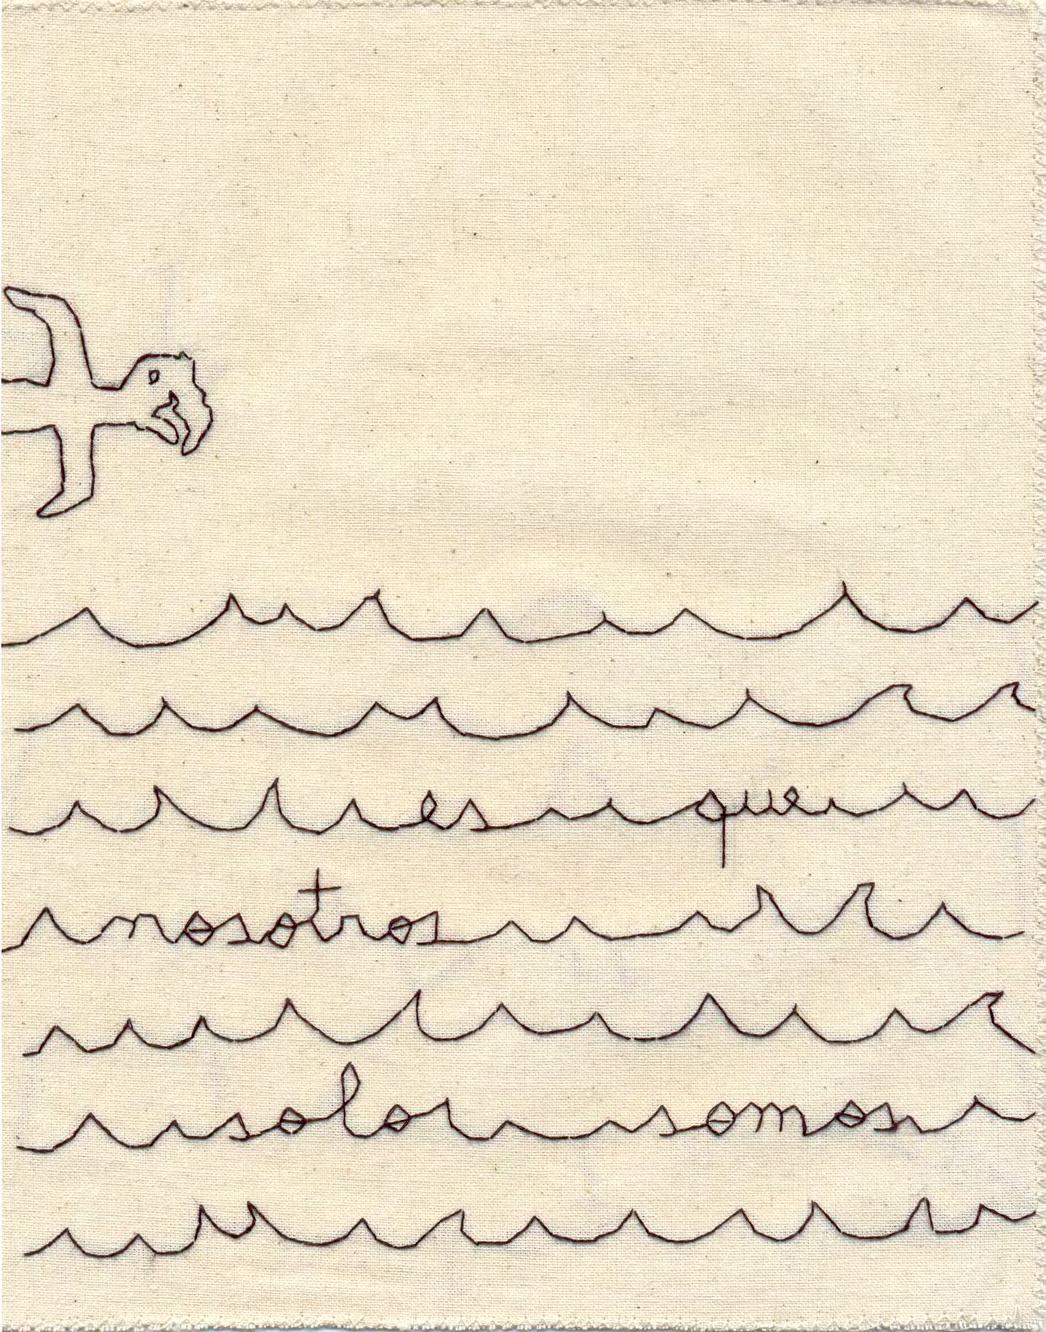 es que
nosotros
solo somos